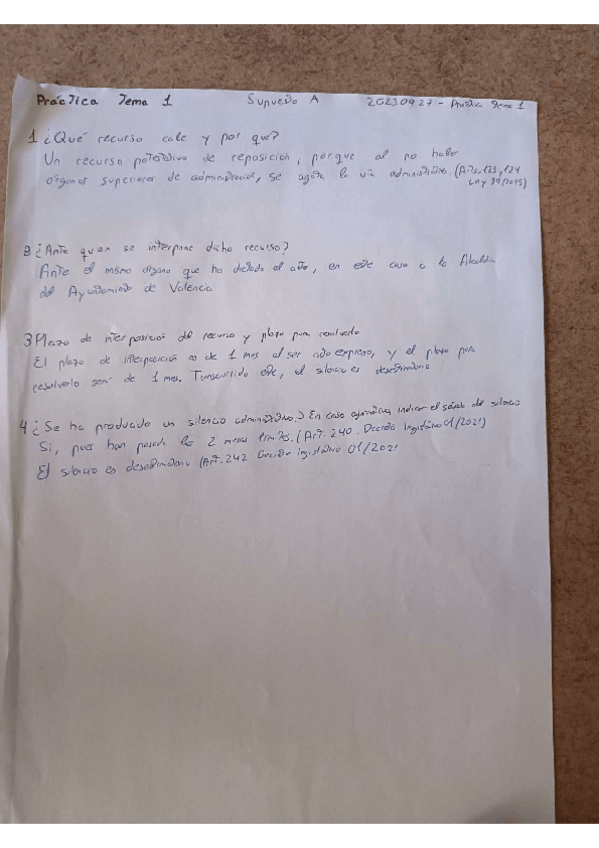 Práctica Tema 1 Supuesto A 20230927 - Práctica Tema 1
1 ¿Qué recurso cabe y por qué?
Un recurso potestativo de reposición, porque al no haber
órganos superiores de administración, se agota la vía administrativa. (Arts. 123, 124
Ley 39/2015)
2 ¿Ante quien se interpone dicho recurso?
Ante el mismo órgano que ha dictado el acto, en este caso a la Alcaldía
del Ayuntamiento de Valencia
3 Plazo de interposición del recurso y plazo para resolverlo
El plazo de interposición es de 1 mes al ser acto expreso, y el plazo para
resolverlo será de 1 mes. Transcurrido este, el silencio es desestimatorio
4 ¿Se ha producido un silencio administrativo? En caso afirmativo, indicar el sentido del silencio
Si, pues han pasado los 2 meses límites. (Art. 240. Decreto legislativo 01/2021)
El silencio es desestimatorio (Art. 242 Decreto legislativo 01/2021